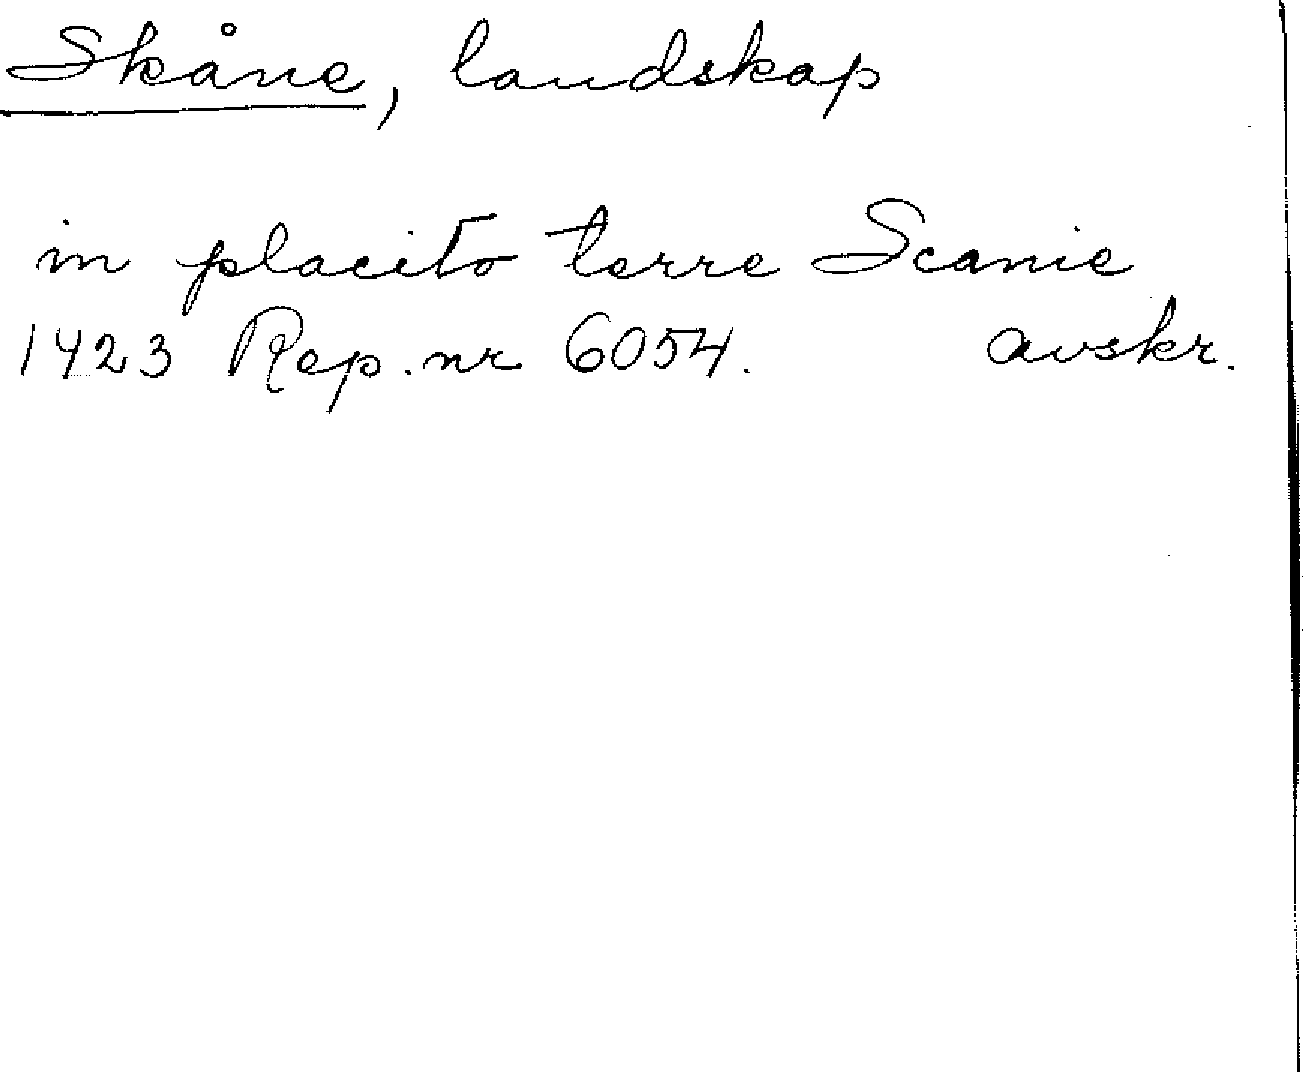 Skåne, landskap
in placito terre Scanie
1423 Rep. nr 6054. avskr.